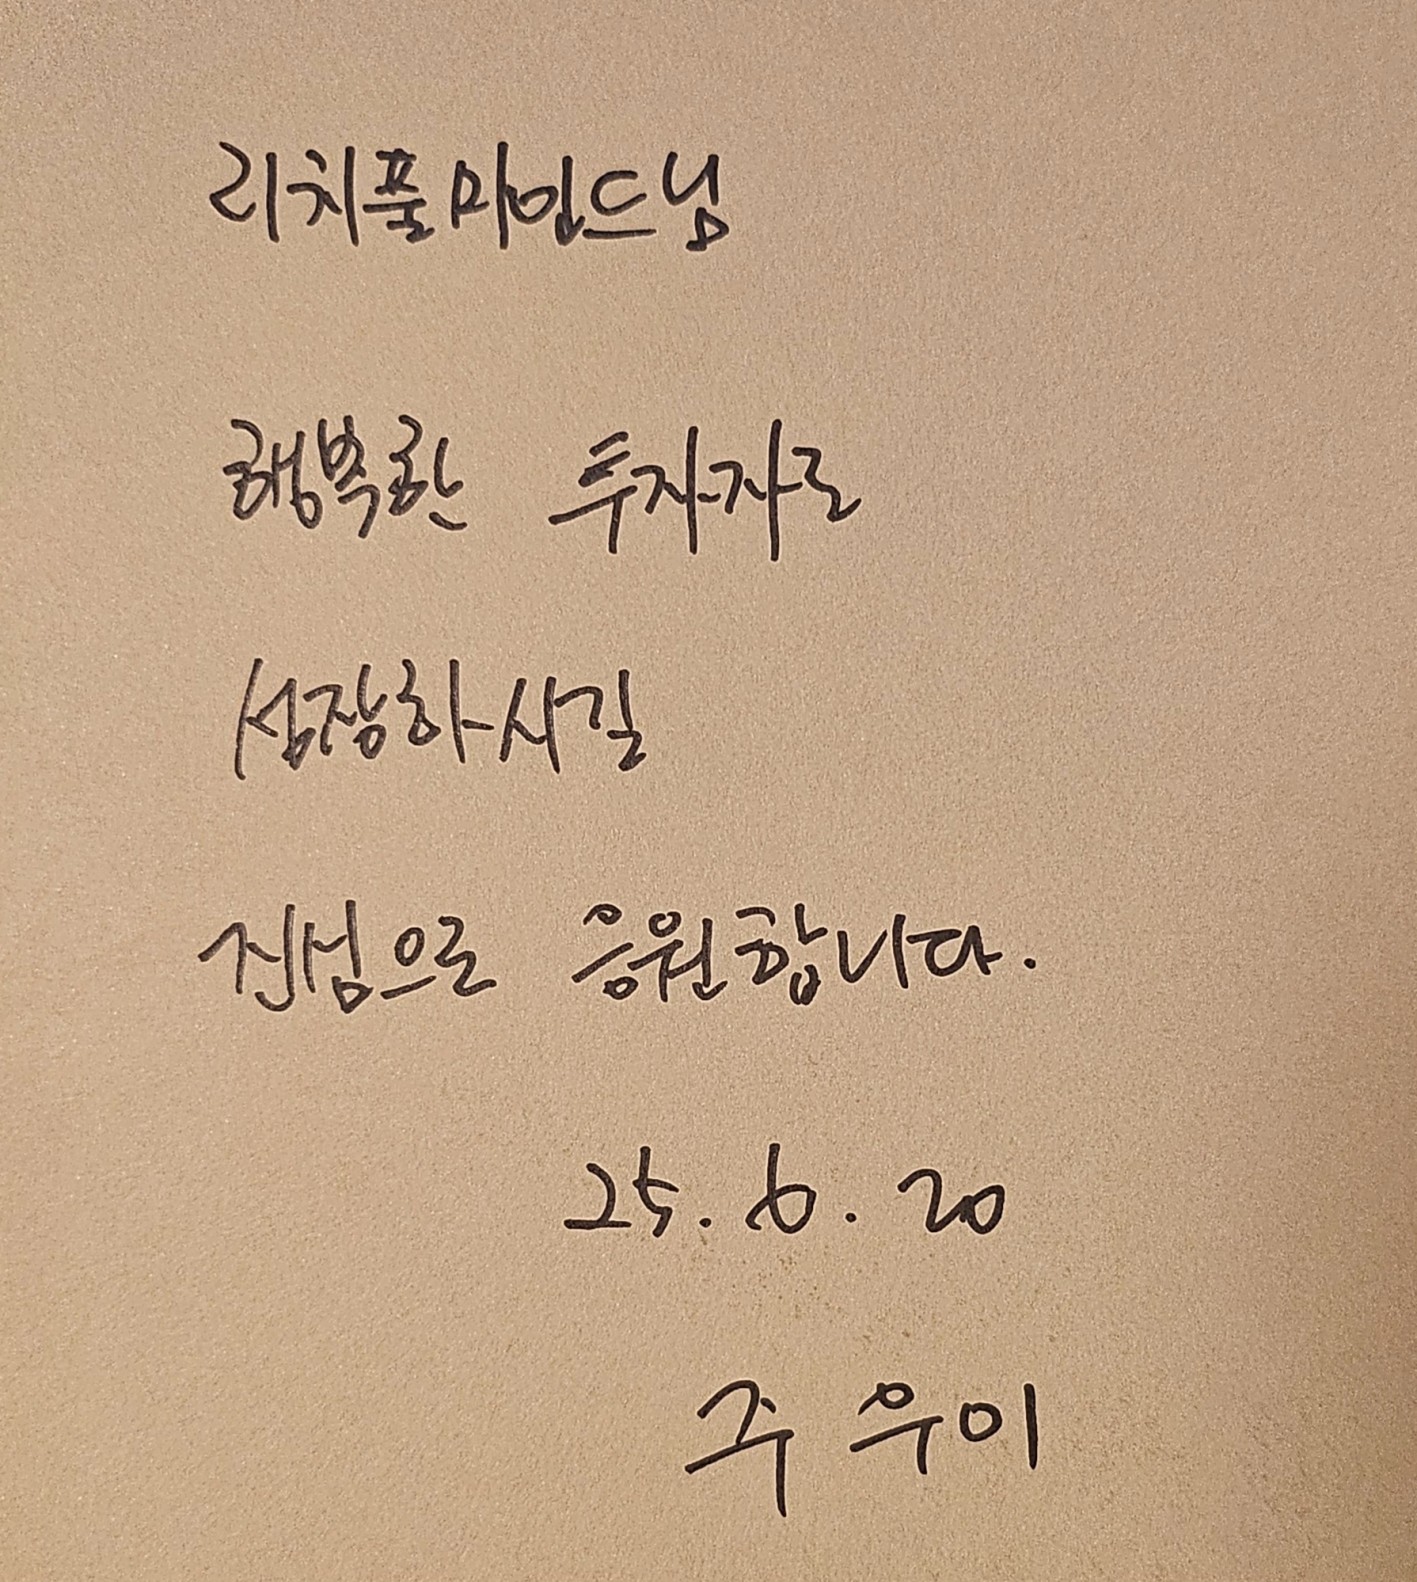 리치풀마인드님
행복한 투자자로
성장하시길
진심으로 응원합니다.
25. 6. 20
주우이